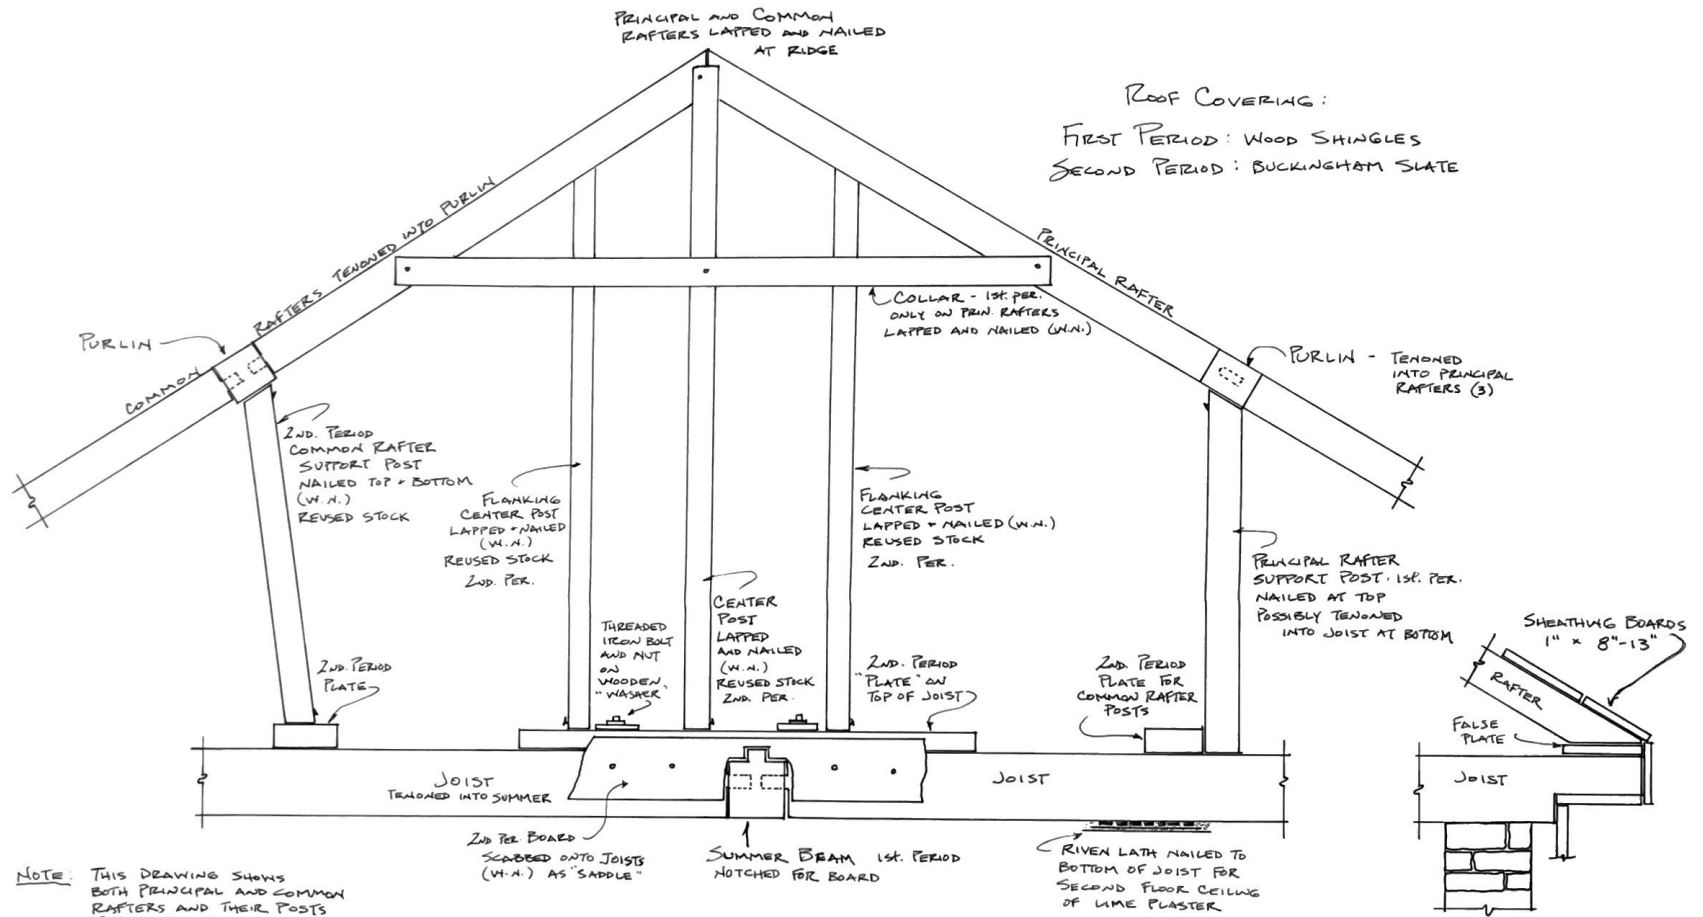 PRINCIPAL AND COMMON
RAFTERS LAPPED AND NAILED
AT RIDGE
ROOF COVERING:
FIRST PERIOD: WOOD SHINGLES
SECOND PERIOD: BUCKINGHAM SLATE
COMMON RAFTERS TENONED INTO PURLIN
PRINCIPAL RAFTER
PURLIN
COLLAR - 1ST. PER.
ONLY ON PRIN. RAFTERS
LAPPED AND NAILED (W.N.)
PURLIN - TENONED
INTO PRINCIPAL
RAFTERS (3)
2ND. PERIOD
COMMON RAFTER
SUPPORT POST
NAILED TOP + BOTTOM
(W.N.)
REUSED STOCK
FLANKING
CENTER POST
LAPPED + NAILED
(W.N.)
REUSED STOCK
2ND. PER.
FLANKING
CENTER POST
LAPPED + NAILED (W.N.)
REUSED STOCK
2ND. PER.
PRINCIPAL RAFTER
SUPPORT POST. 1ST. PER.
NAILED AT TOP
POSSIBLY TENONED
INTO JOIST AT BOTTOM
CENTER
POST
LAPPED
AND NAILED
(W.N.)
REUSED STOCK
2ND. PER.
THREADED
IRON BOLT
AND NUT
ON
WOODEN
"WASHER"
2ND. PERIOD
PLATE
2ND. PERIOD
"PLATE" ON
TOP OF JOIST
2ND. PERIOD
PLATE FOR
COMMON RAFTER
POSTS
SHEATHING BOARDS
1" x 8"-13"
RAFTER
FALSE
PLATE
JOIST
JOIST
TENONED INTO SUMMER
JOIST
2ND PER. BOARD
SCABBED ONTO JOISTS
(W.N.) AS "SADDLE"
SUMMER BEAM 1ST. PERIOD
NOTCHED FOR BOARD
RIVEN LATH NAILED TO
BOTTOM OF JOIST FOR
SECOND FLOOR CEILING
OF LIME PLASTER
NOTE: THIS DRAWING SHOWS
BOTH PRINCIPAL AND COMMON
RAFTERS AND THEIR POSTS